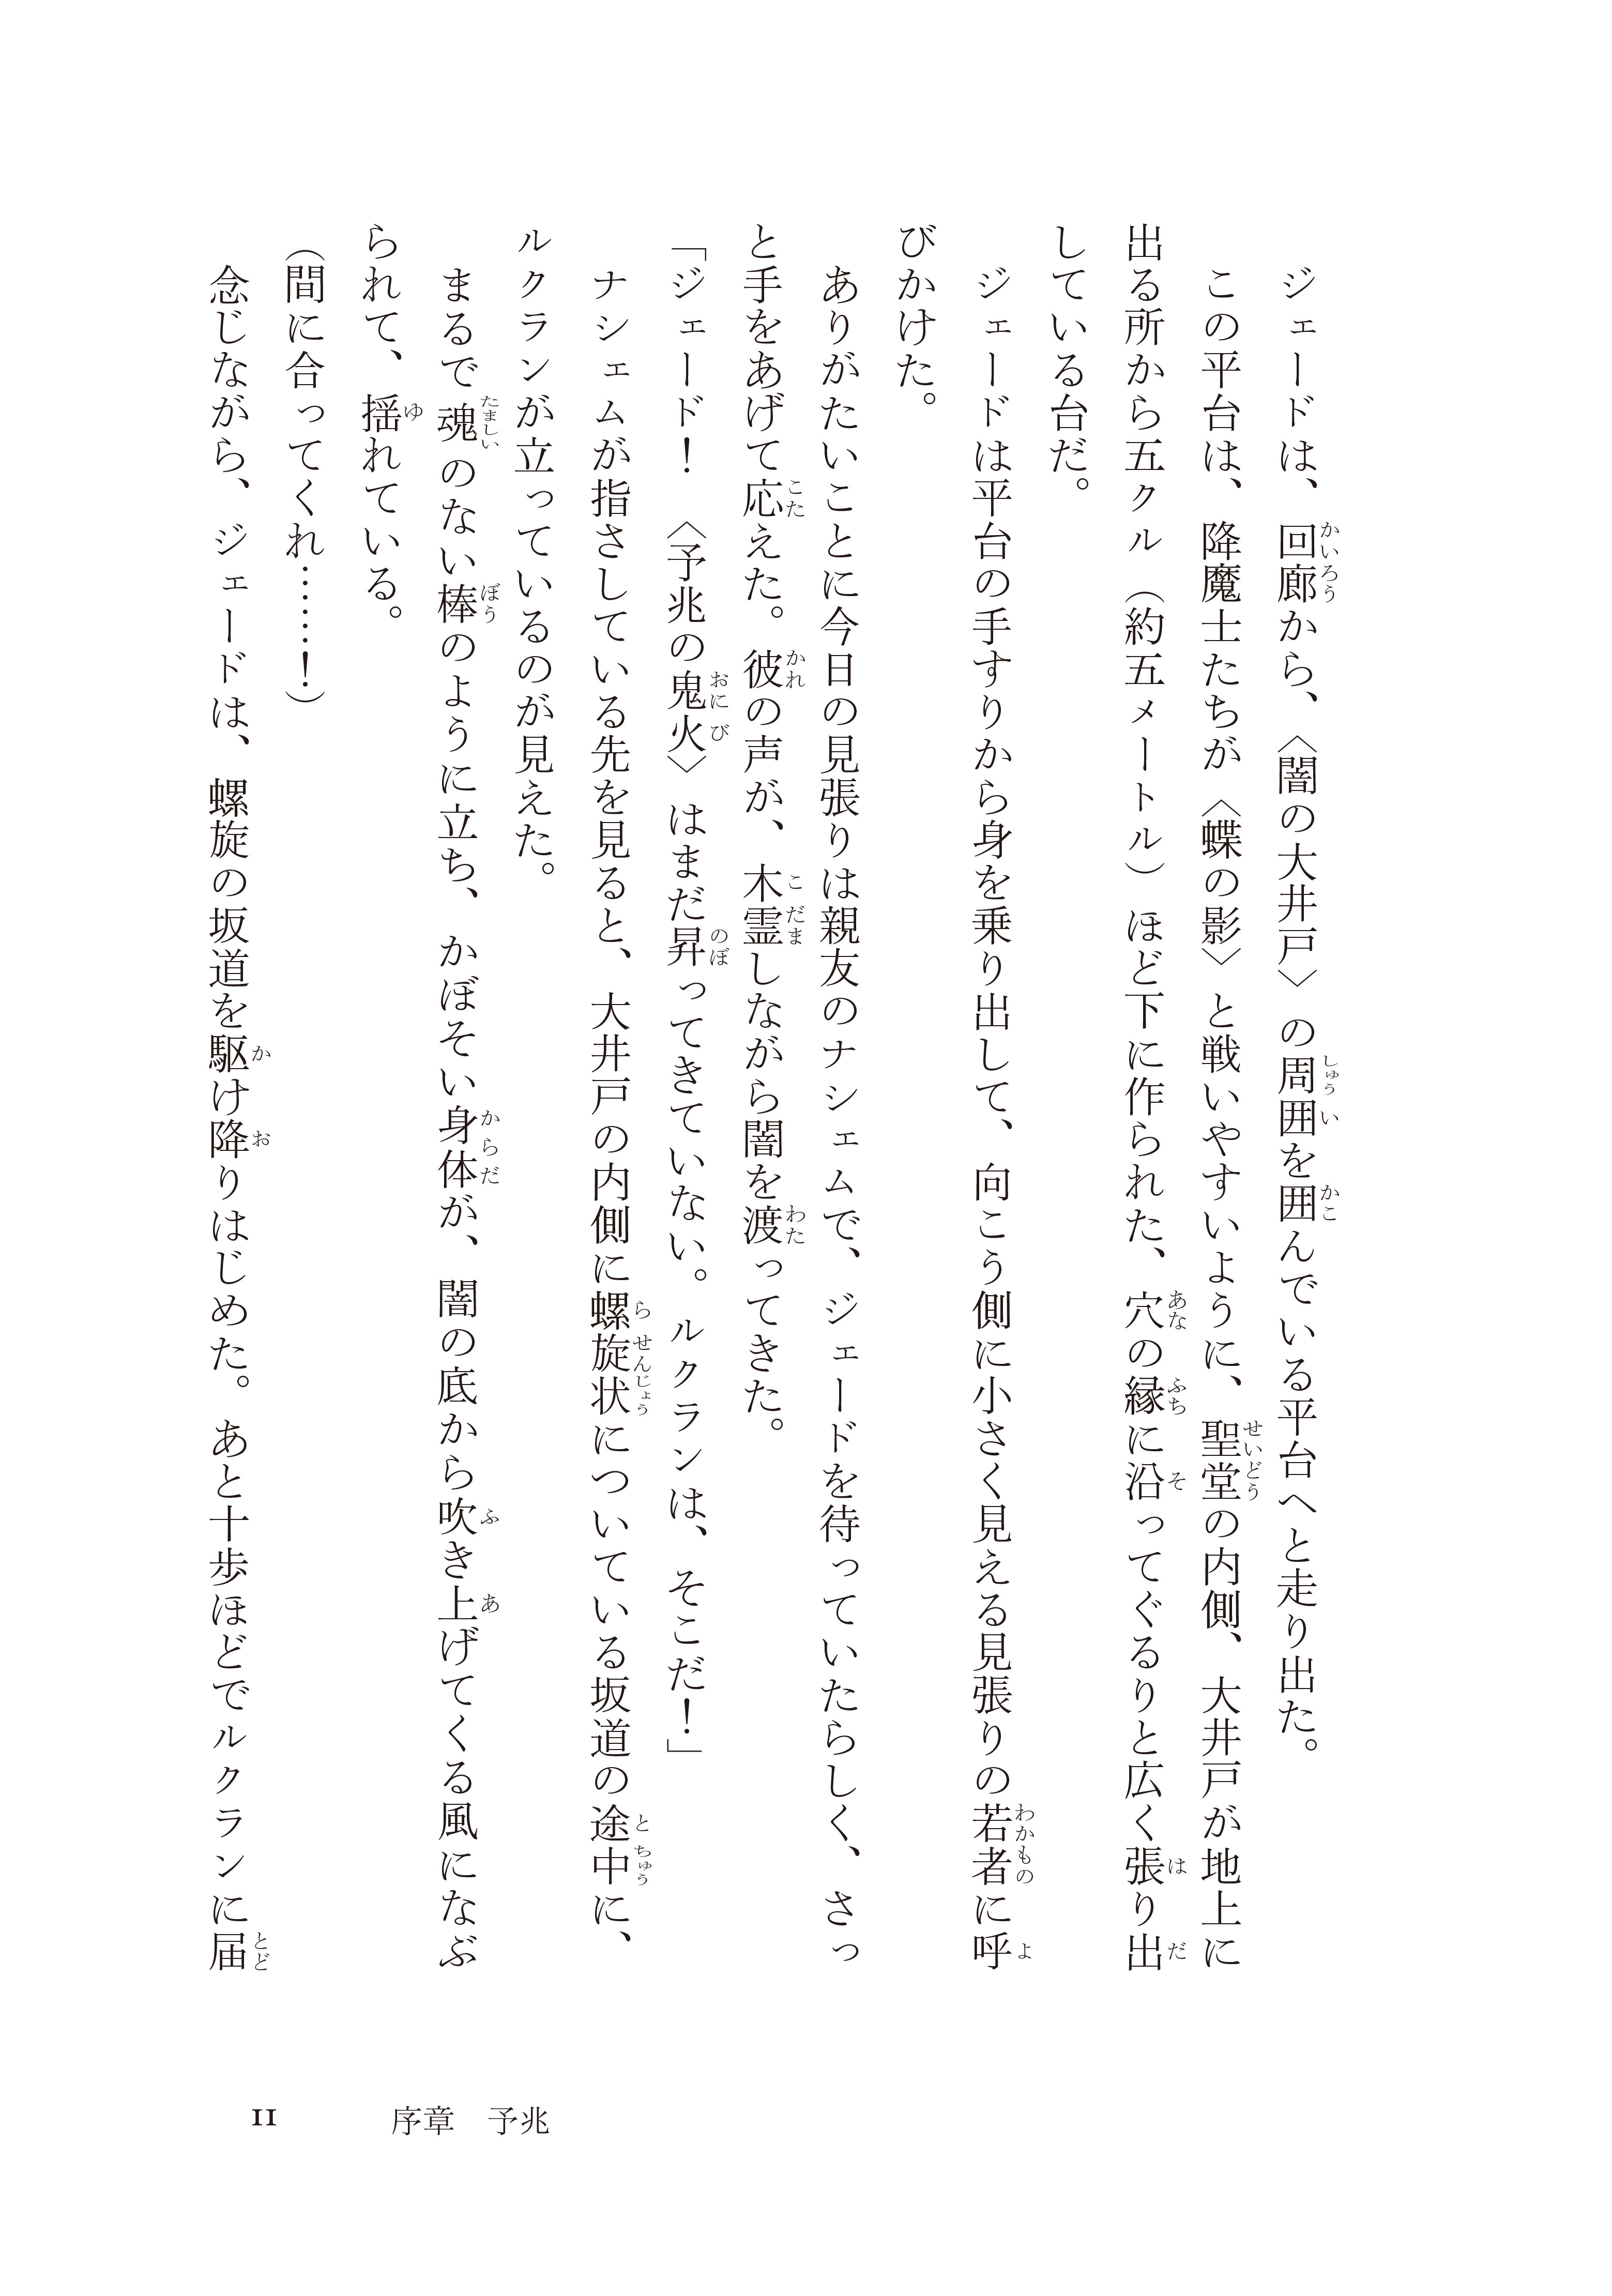 ジェードは、回廊から、〈闇の大井戸〉の周囲を囲んでいる平台へと走り出た。
この平台は、降魔士たちが〈蝶の影〉と戦いやすいように、聖堂の内側、大井戸が地上に
出る所から五クル（約五メートル）ほど下に作られた、穴の縁に沿ってぐるりと広く張り出
している台だ。
ジェードは平台の手すりから身を乗り出して、向こう側に小さく見える見張りの若者に呼
びかけた。
ありがたいことに今日の見張りは親友のナシェムで、ジェードを待っていたらしく、さっ
と手をあげて応えた。彼の声が、木霊しながら闇を渡ってきた。
「ジェード！　〈予兆の鬼火〉はまだ昇ってきていない。ルクランは、そこだ！」
ナシェムが指さしている先を見ると、大井戸の内側に螺旋状についている坂道の途中に、
ルクランが立っているのが見えた。
まるで魂のない棒のように立ち、かぼそい身体が、闇の底から吹き上げてくる風になぶ
られて、揺れている。
（間に合ってくれ……！）
念じながら、ジェードは、螺旋の坂道を駆け降りはじめた。あと十歩ほどでルクランに届
11　序章　予兆